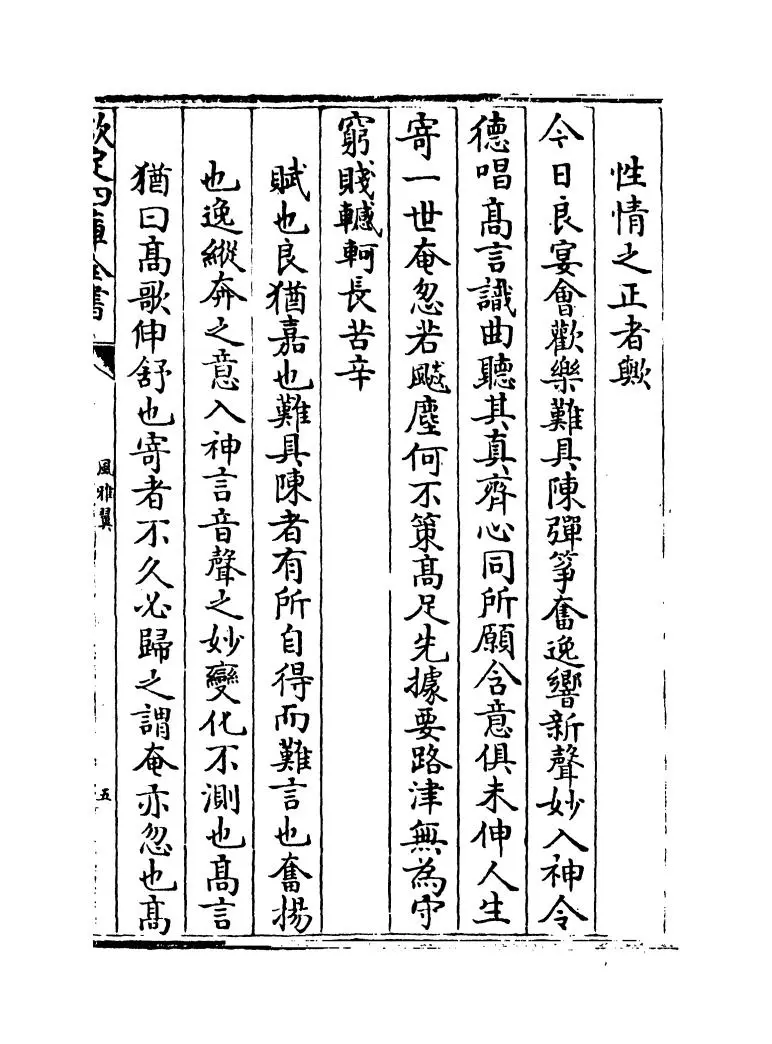 性情之正者歟
今日良宴會歡樂難具陳彈筝奮逸響新聲妙入神令
徳唱髙言識曲聽其真齊心同所願含意俱未伸人生
寄一世奄忽若飈塵何不策髙足先據要路津無為守
窮賤轗軻長苦辛
賦也良猶嘉也難具陳者有所自得而難言也奮揚
也逸縱奔之意入神言音聲之妙變化不測也髙言
猶曰髙歌伸舒也寄者不久必歸之謂奄亦忽也髙
欽定四庫全書
風雅翼
五